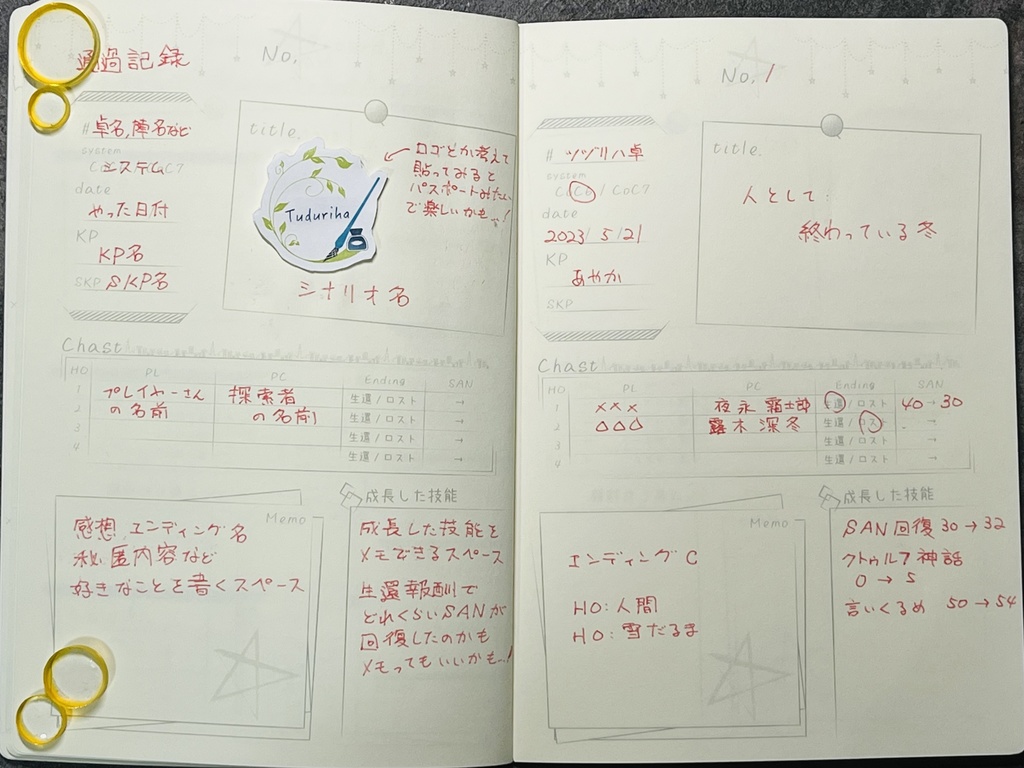 通過記録
No.
# 卓名,陣名など
system
システム
date
やった日付
KP
KP名
SKP SKP名
title.
Tuduriha
ロゴとか考えて
貼ってみると
パスポートみたい
で楽しいかも…!
シナリオ名
Chast
HO PL PC Ending SAN
1 プレイヤーさん 探索者 生還 / ロスト →
2 の名前 の名前 生還 / ロスト →
3 生還 / ロスト →
4 生還 / ロスト →
Memo
感想,エンディング名
秘匿内容など
好きなことを書くスペース
成長した技能
成長した技能を
メモできるスペース
生還報酬で
どれくらいSANが
回復したのかも
メモってもいいかも…!
No. 1
# ツヅリハ卓
system
CoC6 / CoC7
date
2023 / 5 / 21
KP
あやか
SKP
title.
人として
終わっている冬
Chast
HO PL PC Ending SAN
1 ××× 夜永 霜士郎 生還 / ロスト 40 → 30
2 △△△ 露木 深冬 生還 / ロスト →
3 生還 / ロスト →
4 生還 / ロスト →
Memo
エンディングC
HO: 人間
HO: 雪だるま
成長した技能
SAN回復 30 → 32
クトゥルフ神話
0 → 5
言いくるめ 50 → 54